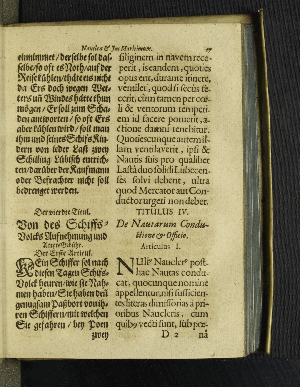 Nautica & Jus Maritimum. 27
einnimmet / derselbe sol das-
selbe / so oft es Noth / auf der
Reise kühlen / thäte es nicht
da Ers doch wegen Wet-
ters uñ Windes hätte thun
mögen / Er soll zum Scha-
den antworten / so oft Ers
aber kühlen wird / soll man
ihm und seines Schifs Kin-
dern von jeder Last zwo
Schilling Lübisch entrich-
ten / darüber der Kauffmann
oder Befrachter nicht soll
bedrenget werden.
Der vierdte Titul.
Von des Schiffs-
Volcks Aufnehmung und
Der Erste Articul.
Kein Schiffer sol nach
diesen Tagen Schifs-
Volck heuren / wie sie Nah-
men haben / Sie haben deñ
genugsam Paßbort von ih-
ren Schiffern / mit welchen
Sie gefahren / bey Poen
zwey
siliginem in navem rece-
perit, is eandem, quoties
opus erit, durante itinere,
ventilet, quod si secus fe-
cerit, cum tamen per cœ-
li & ventorum temperi-
em id facere potuerit, a-
ctione damni tenebitur.
Quotiescunque autem il-
lam ventilaverit, ipsi &
Nautis suis pro qualibet
Lasta duo solidi Lubecen-
ses solvi debent, ultra
quod Mercator aut Con-
ductor urgeri non debet.
TITULUS IV.
De Nautarum Condu-
ctione & Officio.
Articulus I.
Nullᵘs Nauclerᵘs post-
hac Nautas condu-
cat, quocunque nomine
appellentur, nisi sufficien-
tes literas dimissorias à pri-
oribus Naucleris, cum
quibᵘs vecti sunt, sub pœ-
D 2 nâ